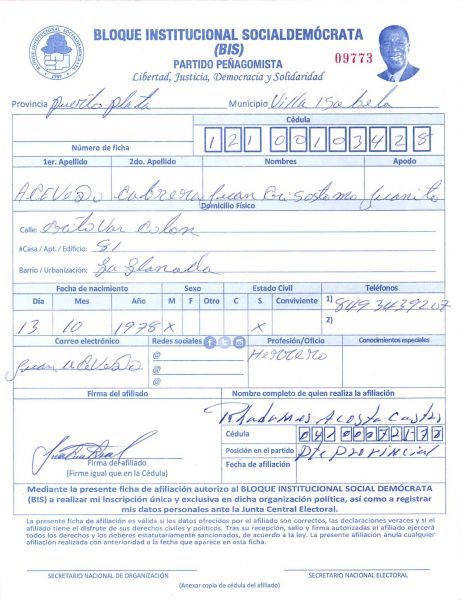 BLOQUE INSTITUCIONAL SOCIALDEMÓCRATA
(BIS)
09773
PARTIDO PEÑAGOMISTA
Libertad, Justicia, Democracia y Solidaridad
Provincia Puerto Plata Municipio Villa Isabela
Cédula
Número de ficha 121 0010342 8
1er. Apellido 2do. Apellido Nombres Apodo
ACEVEDO Cabrera Juan Crisostomo Juanito
Domicilio Físico
Calle: Colon
#Casa / Apt. / Edificio: 81
Barrio / Urbanización: La
Fecha de nacimiento Sexo Estado Civil Teléfonos
Día Mes Año M F Otro C S Conviviente 1) 8493439207
13 10 1978 X X 2)
Correo electrónico Redes sociales Profesión/Oficio Conocimientos especiales
Juan ACEVEDO @ Herrero
@
@
Firma del afiliado Nombre completo de quien realiza la afiliación
Rhadames Acosta Castro
Cédula
Firma del afiliado Posición en el partido Pte Provincial
(Firme igual que en la Cédula) Fecha de afiliación
Mediante la presente ficha de afiliación autorizo al BLOQUE INSTITUCIONAL SOCIAL DEMÓCRATA
(BIS) a realizar mi inscripción única y exclusiva en dicha organización política, así como a registrar
mis datos personales ante la Junta Central Electoral.
La presente ficha de afiliación es válida si los datos ofrecidos por el afiliado son correctos, las declaraciones veraces y si el
afiliado tiene el disfrute de sus derechos civiles y políticos. Tras su recepción, sello y firma autorizadas el afiliado ejercerá
todos los derechos y los deberes estatutariamente sancionados, de acuerdo a la ley. La presente afiliación anula cualquier
afiliación realizada con anterioridad a la fecha que aparece en esta ficha.
SECRETARIO NACIONAL DE ORGANIZACIÓN SECRETARIO NACIONAL ELECTORAL
(Anexar copia de cédula del afiliado)